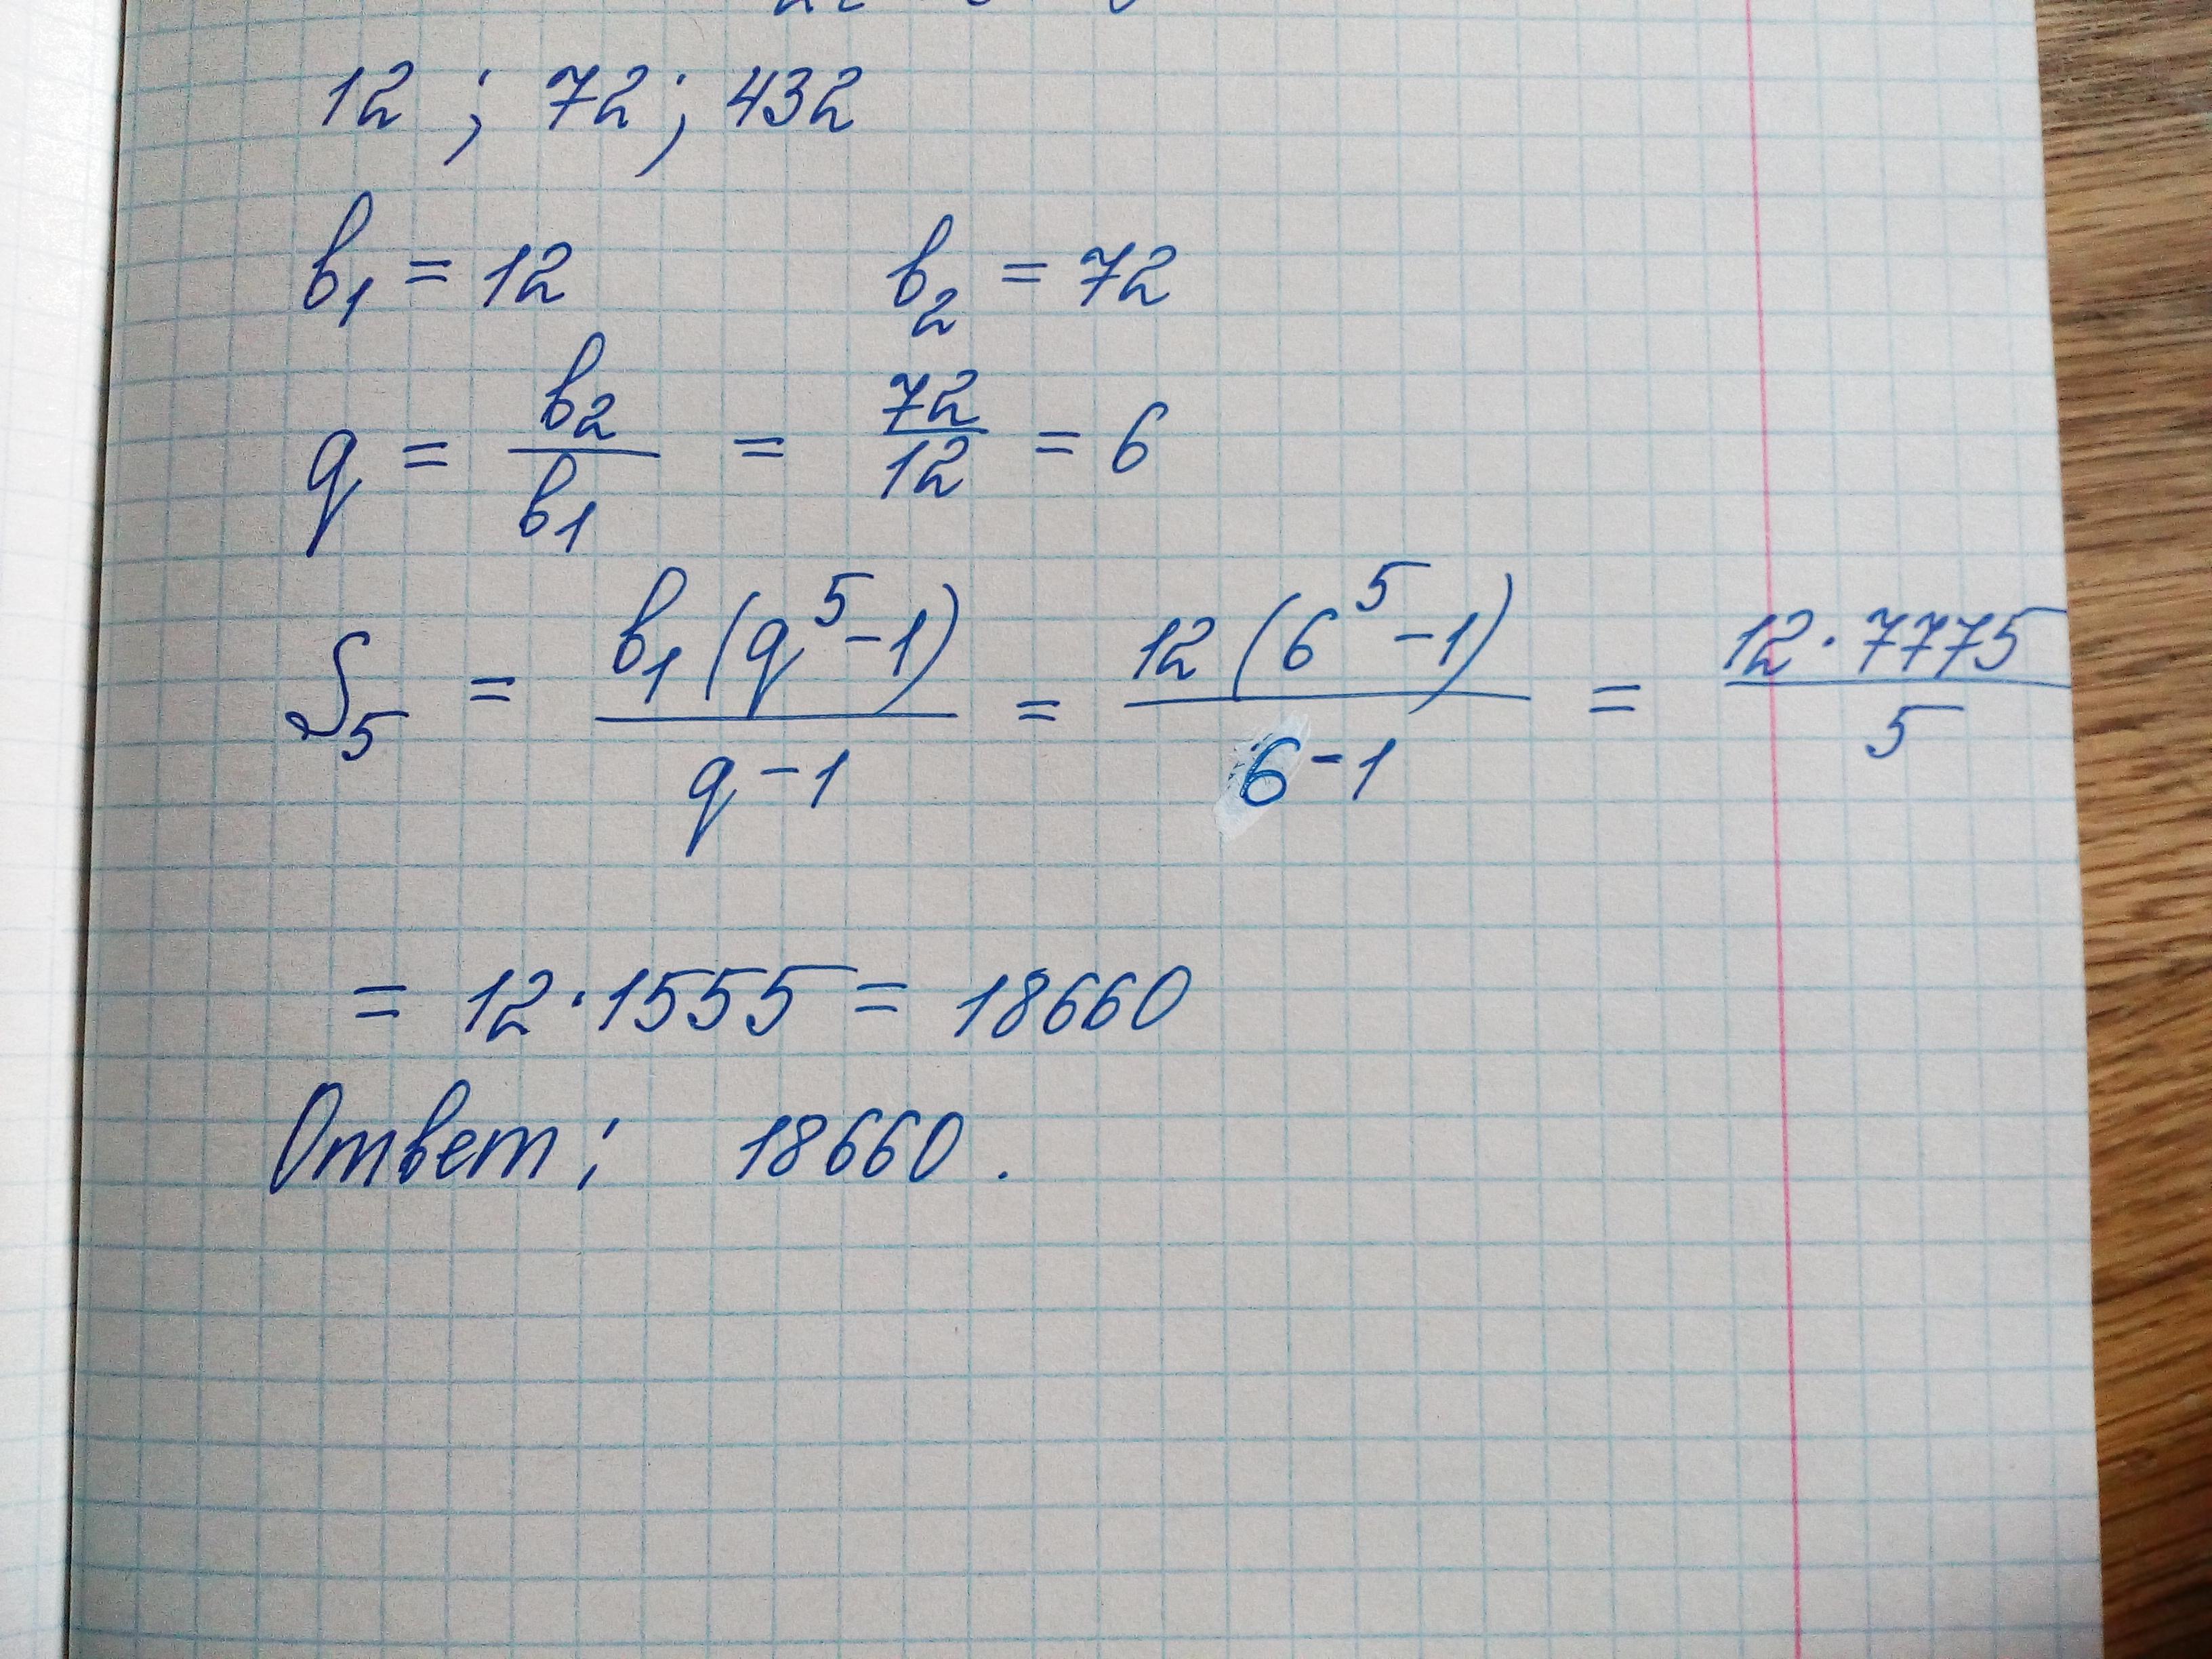 12 ; 72 ; 432
b₁ = 12 b₂ = 72
q = b₂/b₁ = 72/12 = 6
S₅ = b₁(q⁵-1)/(q-1) = 12(6⁵-1)/(6-1) = 12·7775/5
= 12·1555 = 18660
Ответ: 18660.